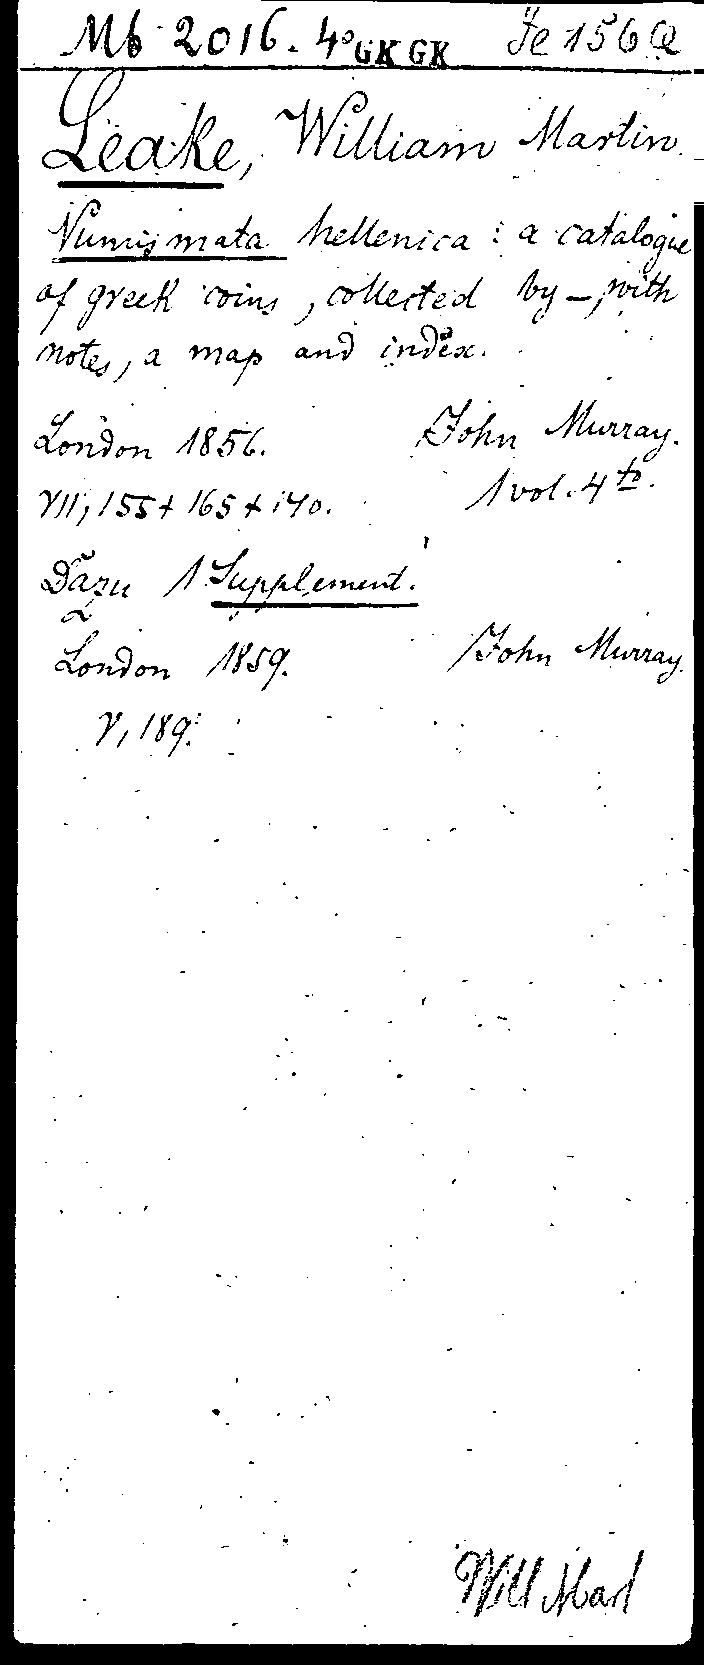 Mb 2016. 4° GK GK Je 156 Q
Leake, William Martin
Numismata hellenica : a catalogue
of greek coins, collected by —, with
notes, a map and index.
London 1856. John Murray.
VII, 155 + 165 + 140. 1 vol. 4to.
Dazu 1 Supplement.
London 1859. John Murray
V, 189.
Will Mart